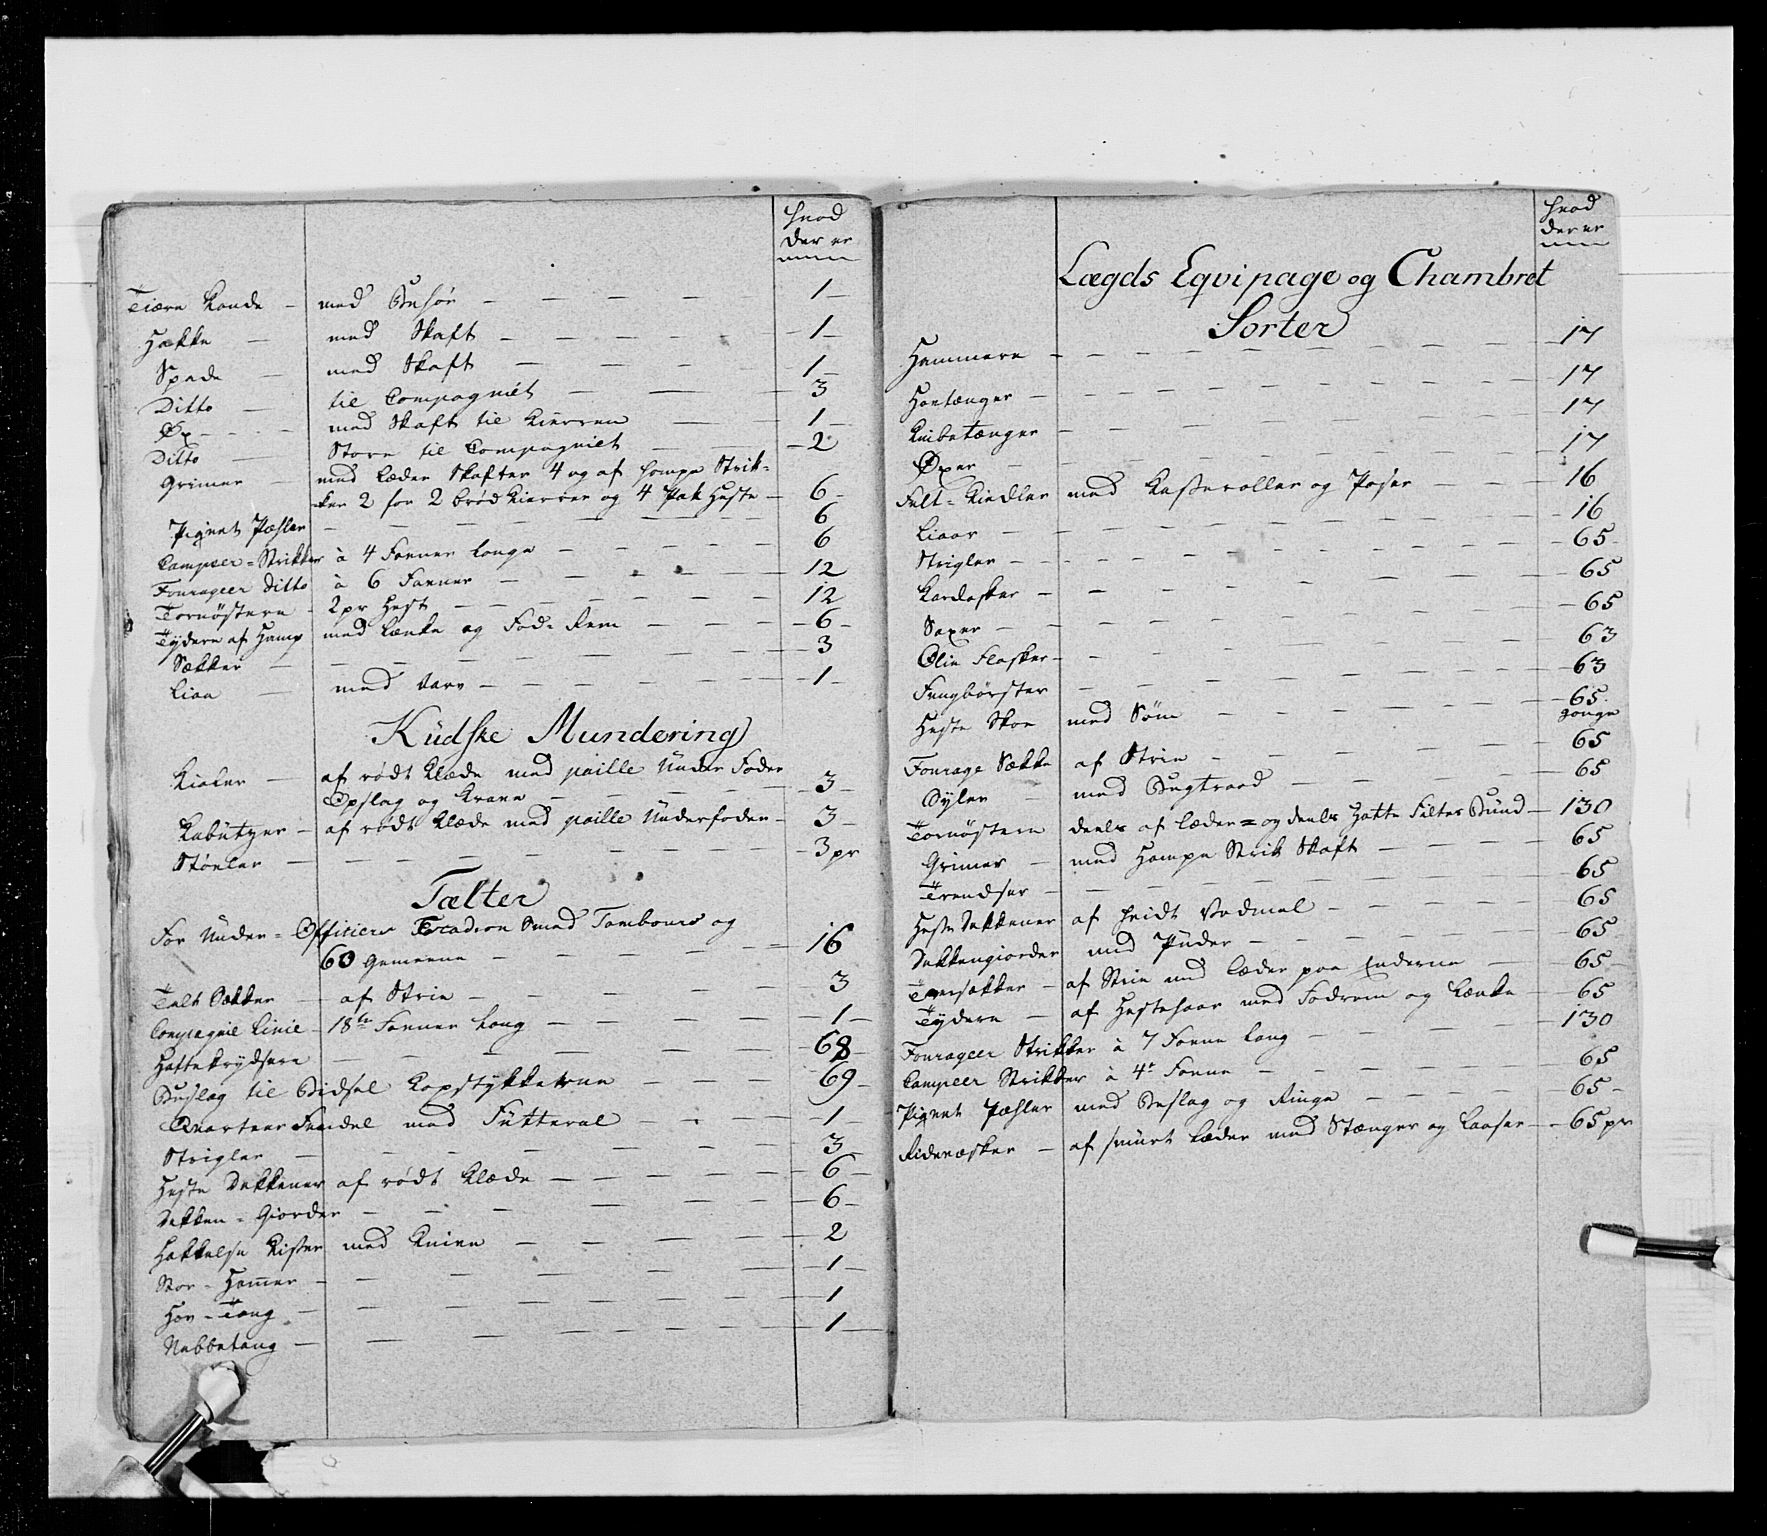 hvad
der er
Tiære Kande - med Behør - 1 -
Hakke - med Skaft - 1 -
Spade - med Skaft - 1 -
Ditto - til Compagniet - 3
Øx - med Skaft til Kierren - 1 -
Ditto - Store til Compagniet - 2
Grimer - med Læder Skafter 4 og af Hampe Strik-
ker 2 for 2 brød Kierrer og 4 Pak Heste - 6 -
Piqvet Pæhler - 6
Campeer-Strikker à 4 Favner lange - 6
Fourageer Ditto à 6 Favner - 12
Tornøstere - 2 pr Hest - 12
Tydere af Hamp med Lænke og Fod-Rem - 6 -
Sækker - 3
Liaa - med Varv - 1 -
Kudske Mundering
Kioler - af rødt Klæde med paille Under Foder
Opslag og Krave - 3 -
Kabutzer - af rødt Klæde med paille Underfoder - 3 -
Støvler - 3 pr
Tælter
For Under-Officiers Escadron Smed Tambours og
60 Gemeene - 16
Telt Sækker - af Strie - 3
Compagnie Linie - 18ten Favner lang - 1 -
Hattekrydsere - 68 -
Beslag til Bidsel Kopstykkerne - 69 -
Qvarteer Fendel med Futteral - 1 -
Strigler - 3
Heste Dekkener af rødt Klæde - 6 -
Dekken-Giorder - 6 -
Hakkelse Kister med Knive - 2
Stor-Hamer - 1 -
Hov-Tang - 1
Nebbetang - 1 -
hvad
der er
Lægds Eqvipage og Chambret
Sorter
Hammere - 17
Hovtænger - 17
Knibetænger - 17
Øxer - 17
Felt-Kiedler med Kasseroller og Poser - 16
Liaar - 16
Strigler - 65 -
Kardasker - 65
Saxer - 65
Olie Flasker - 63
Fungbørster - 63
Heste Skoe med Søm - 65
gange
Fourage Sække af Strie - 65
Syler - med Begtraad - 65
Tornøstere deels af Læder - og deels Hatte Filtes Bund - 130
Grimer - med Hampe Strik Skaft - 65
Trendser - 65
Heste Dekkener af hvidt Vadmel - 65
Dekkengiorder med Puder - 65
Tversækker - af Strie med Læder paa Enderne - 65 -
Tydere - af Hestehaar med Fodrem og Lænke - 65
Fourageer Strikker à 7 Favne lang - 130
Campeer Strikker à 4r Favne - 65
Piqvet Pæhler med Beslag og Ringe - 65 -
Ridevæsker - af smurt Læder med Stænger og Laaser - 65 pr